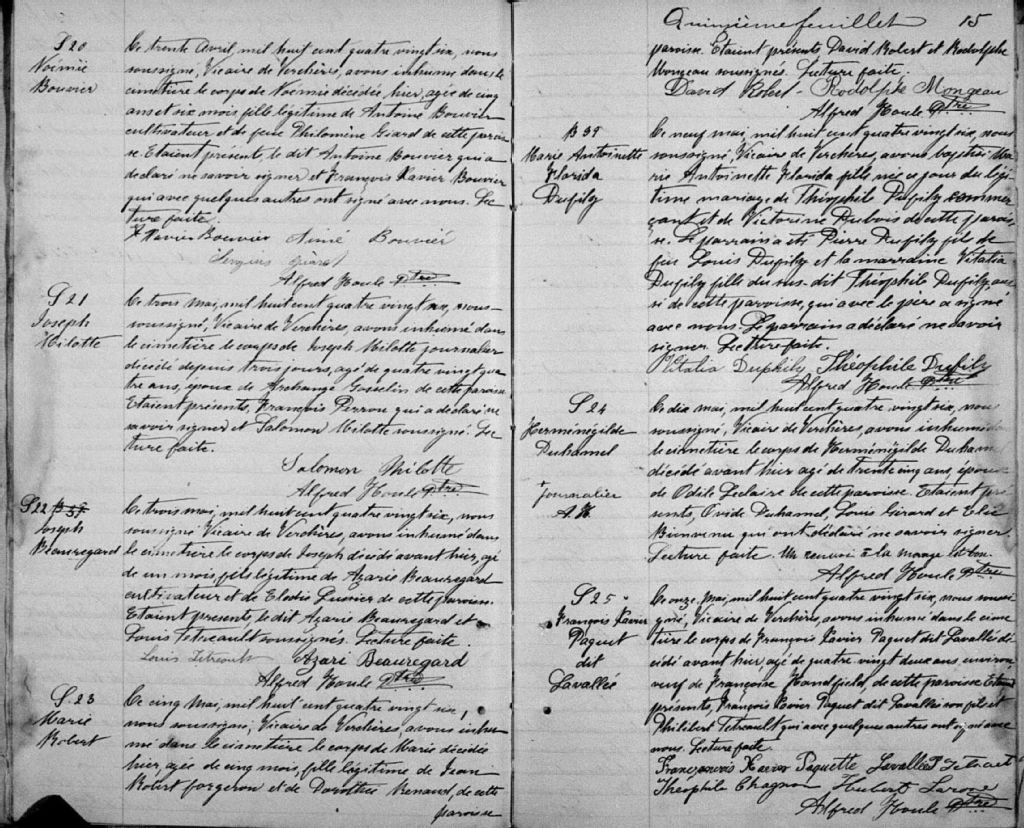 S 20
Noémie
Bouvier
Ce trente Avril, mil huit cent quatre vingt six, nous
soussigné, Vicaire de Verchères, avons inhumé dans le
cimetière le corps de Noémie décédée, hier, agée de cinq
ans et six mois, fille légitime de Antoine Bouvier
cultivateur et de feue Philomène Giard de cette parois-
se. Etaient présents, le dit Antoine Bouvier qui a
declaré ne savoir signer et François Xavier Bouvier
qui avec quelques autres ont signé avec nous. Lec-
ture faite.
Xavier Bouvier Aimé Bouviér
Alfred Houle Ptre
S 21
Joseph
Milotte
Ce trois mai, mil huit cent quatre vingt six, nous
soussigné, Vicaire de Verchères, avons inhumé dans
le cimetière le corps de Joseph Milotte journalier
décédé depuis trois jours, agé de quatre vingt qua-
tre ans, époux de Archange Gosselin de cette paroisse
Etaient présents, François Perron qui a déclaré ne
savoir signer et Salomon Milotte soussigné. Lec-
ture faite.
Salomon Milotte
Alfred Houle Ptre
S 22
Joseph
Beauregard
Ce trois mai, mil huit cent quatre vingt six, nous
soussigné Vicaire de Verchères, avons inhumé dans
le cimetière le corps de Joseph décédé avant hier, agé
de un mois, fils légitime de Azarie Beauregard
cultivateur et de Elodie Lussier de cette paroisse.
Etaient presents, le dit Azarie Beauregard et
Louis Tetreault soussignés. Lecture faite.
Louis Tetreault Azari Beauregard
Alfred Houle Ptre
S. 23
Marie
Robert
Ce cinq Mai, mil huit cent quatre vingt six,
nous soussigné, Vicaire de Verchères, avons inhu-
mé dans le cimetière le corps de Marie décédée
hier, agée de cinq mois, fille légitime de Jean
Robert forgeron et de Dorothée Renaud, de cette
paroisse
Quinzième feuillet 15
paroisse. Etaient présents David Robert et Rodolphe
Mongeau soussignés. Lecture faite.
David Robert - Rodolphe Mongeau
Alfred Houle Ptre
B 39
Marie Antoinette
Florida
Dupily
Ce neuf mai, mil huit cent quatre vingt six, nous
soussigné, Vicaire de Verchères, avons baptisé Ma-
rie Antoinette Florida fille née ce jour du légi-
time mariage de Théophile Dupily commer-
çant et de Victorine Dubois de cette parois-
se. Le parrain a été Pierre Dupily fils de
feu Louis Dupily et la marraine Vitalia
Dupily fille du sus-dit Théophile Dupily, aus-
si de cette paroisse, qui avec le père a signé
avec nous. Le parrain a déclaré ne savoir
signer. Lecture faite.
Vitatia Duphily Théophile Dupily
Alfred Houle Ptre
S 24
Herménégilde
Duhamel
Journalier
A. H.
Ce dix mai, mil huit cent quatre vingt six, nous
soussigné, Vicaire de Verchères, avons inhumé dans
le cimetière le corps de Herménégilde Duhamel
décédé avant hier agé de Trente cinq ans, époux
de Odile Leclaire de cette paroisse. Etaient pré-
sents, Ovide Duhamel, Louis Girard et Elie
Bienvenu qui ont déclaré ne savoir signer.
Lecture faite. Un renvoi à la marge est bon.
Alfred Houle Ptre
S 25
François Xavier
Paquet
dit
Lavallée
Ce onze Mai, mil huit cent quatre vingt six, nous sous-
signé, Vicaire de Verchères, avons inhumé dans le cime-
tière le corps de François Xavier Paquet dit Lavallée dé-
cédé avant hier, agé de quatre vingt deux ans, environ
veuf de Françoise Handfield, de cette paroisse. Etaient
présents, François Xavier Paquet dit Lavallée son fils et
Philibert Tetreault qui avec quelques autres ont signé avec
nous. Lecture faite.
Xavier Paquette Lavallée
Theophile Chagnon Hubert Larose
Alfred Houle Ptre